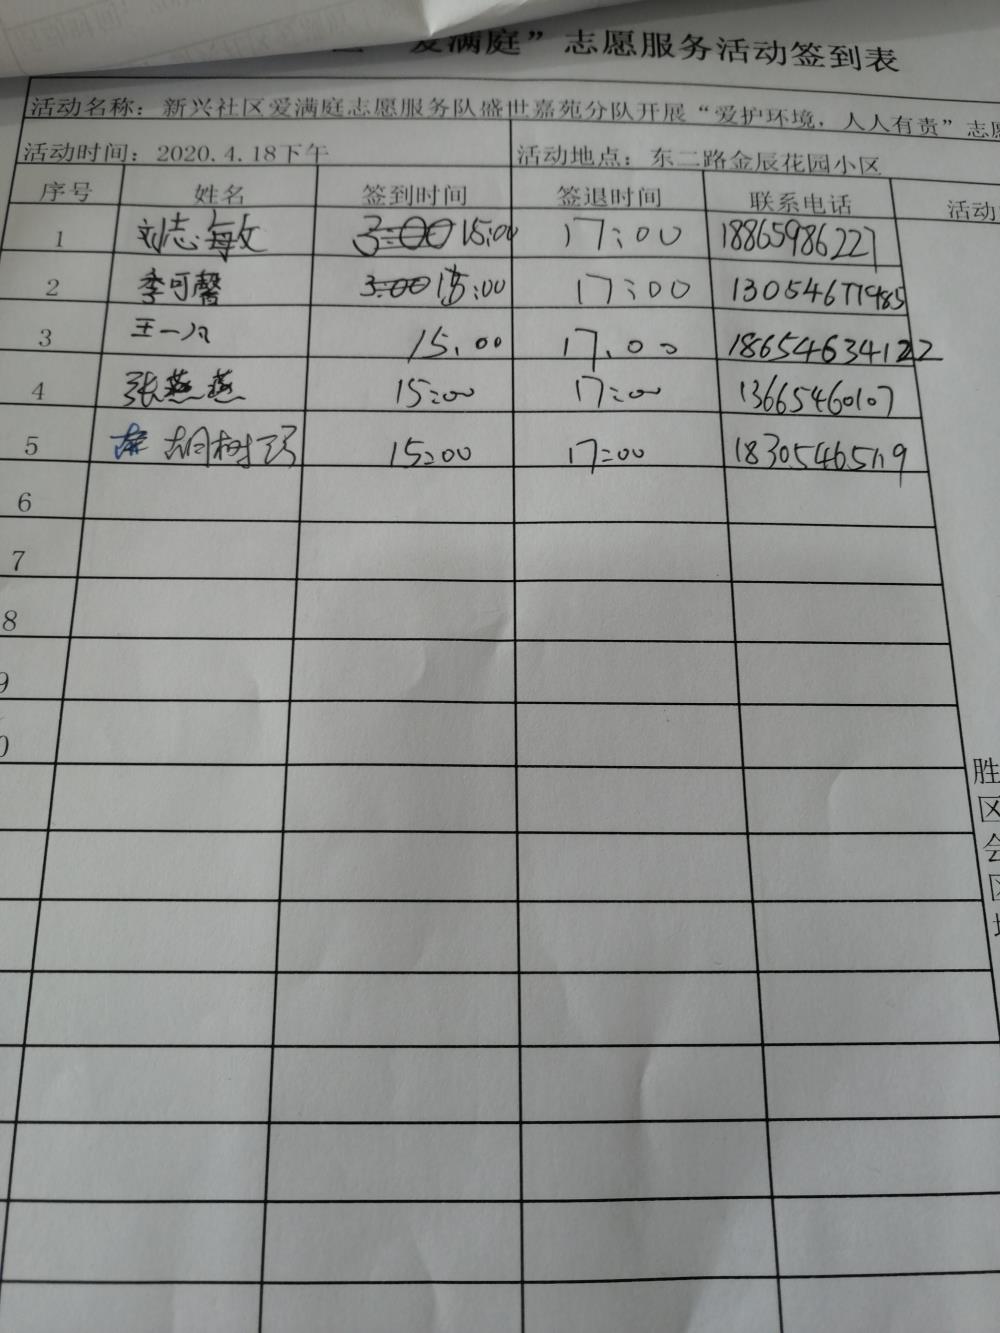 爱满庭”志愿服务活动签到表
活动名称：新兴社区爱满庭志愿服务队盛世嘉苑分队开展“爱护环境，人人有责”志愿
活动时间：2020.4.18下午 活动地点：东二路金辰花园小区
序号 姓名 签到时间 签退时间 联系电话 活动
1 刘志敏 3:00 15:00 17:00 18865986227
2 李可馨 3:00 15:00 17:00
3 王一凡 15.00 17.00 18654634122
4 张燕燕 15:00 17:00 13665460107
5 胡树巧 15:00 17:00 18305465119
6
7
8
9
0
胜
区
会
区